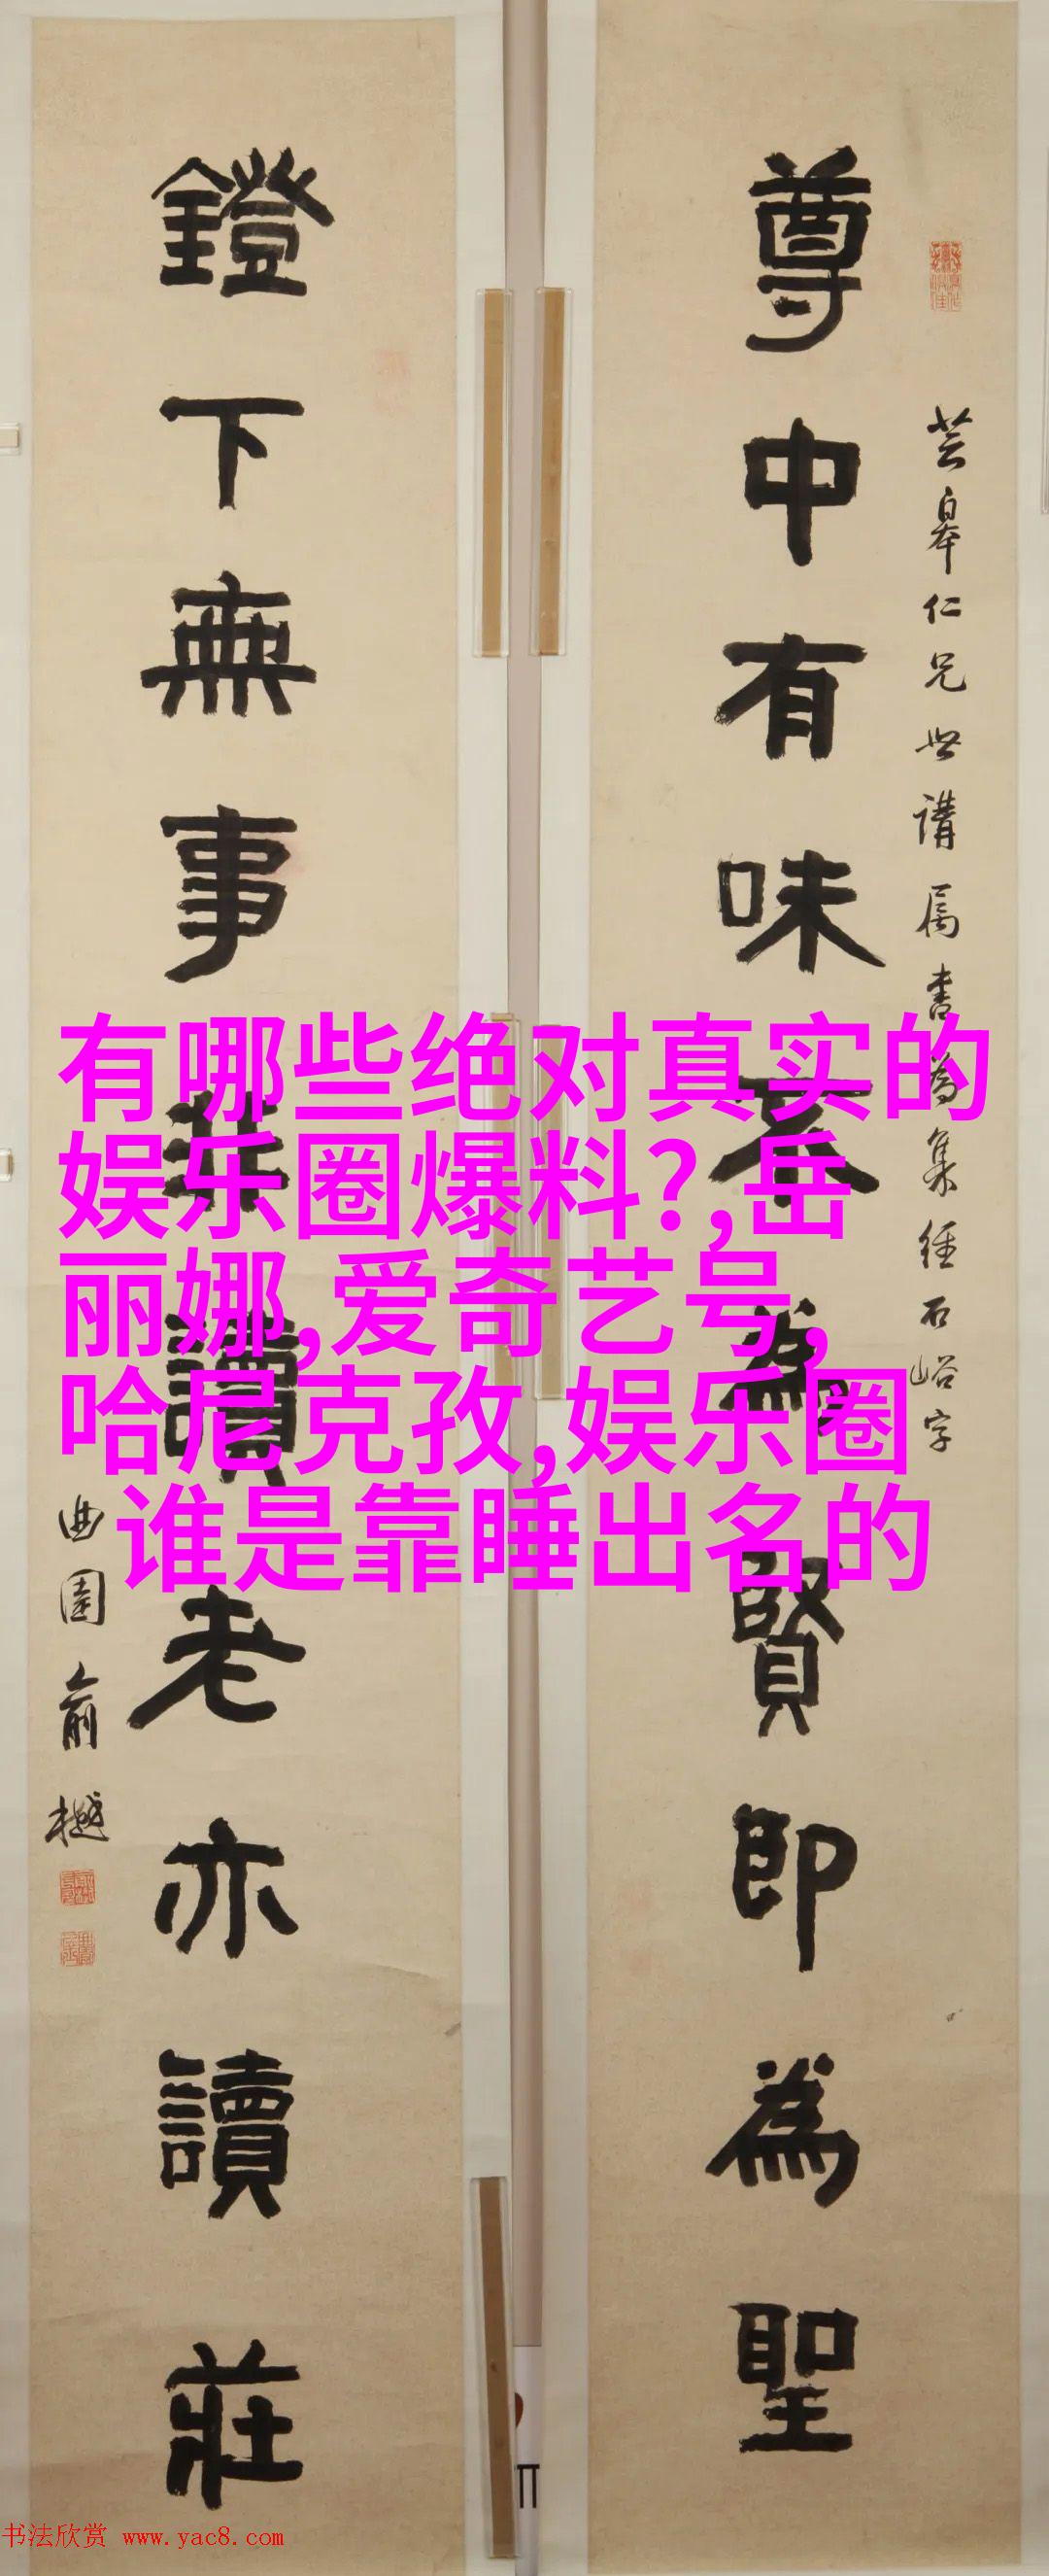 芸皋仁兄世講属書為集經石峪字
尊中有味不為賢即為聖
鐙下無事非讀老亦讀莊
曲園俞樾
有哪些绝对真实的
娱乐圈爆料?,岳
丽娜,爱奇艺号,
哈尼克孜,娱乐圈
谁是靠睡出名的
书法欣赏 www.yac8.com